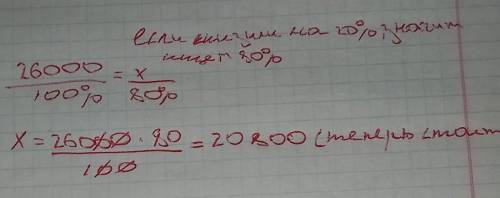 если снизили на 20%, значит
ищем 80%
26000/100% = x/80%
X = 26000 · 80 / 100 = 20800 (теперь стоит